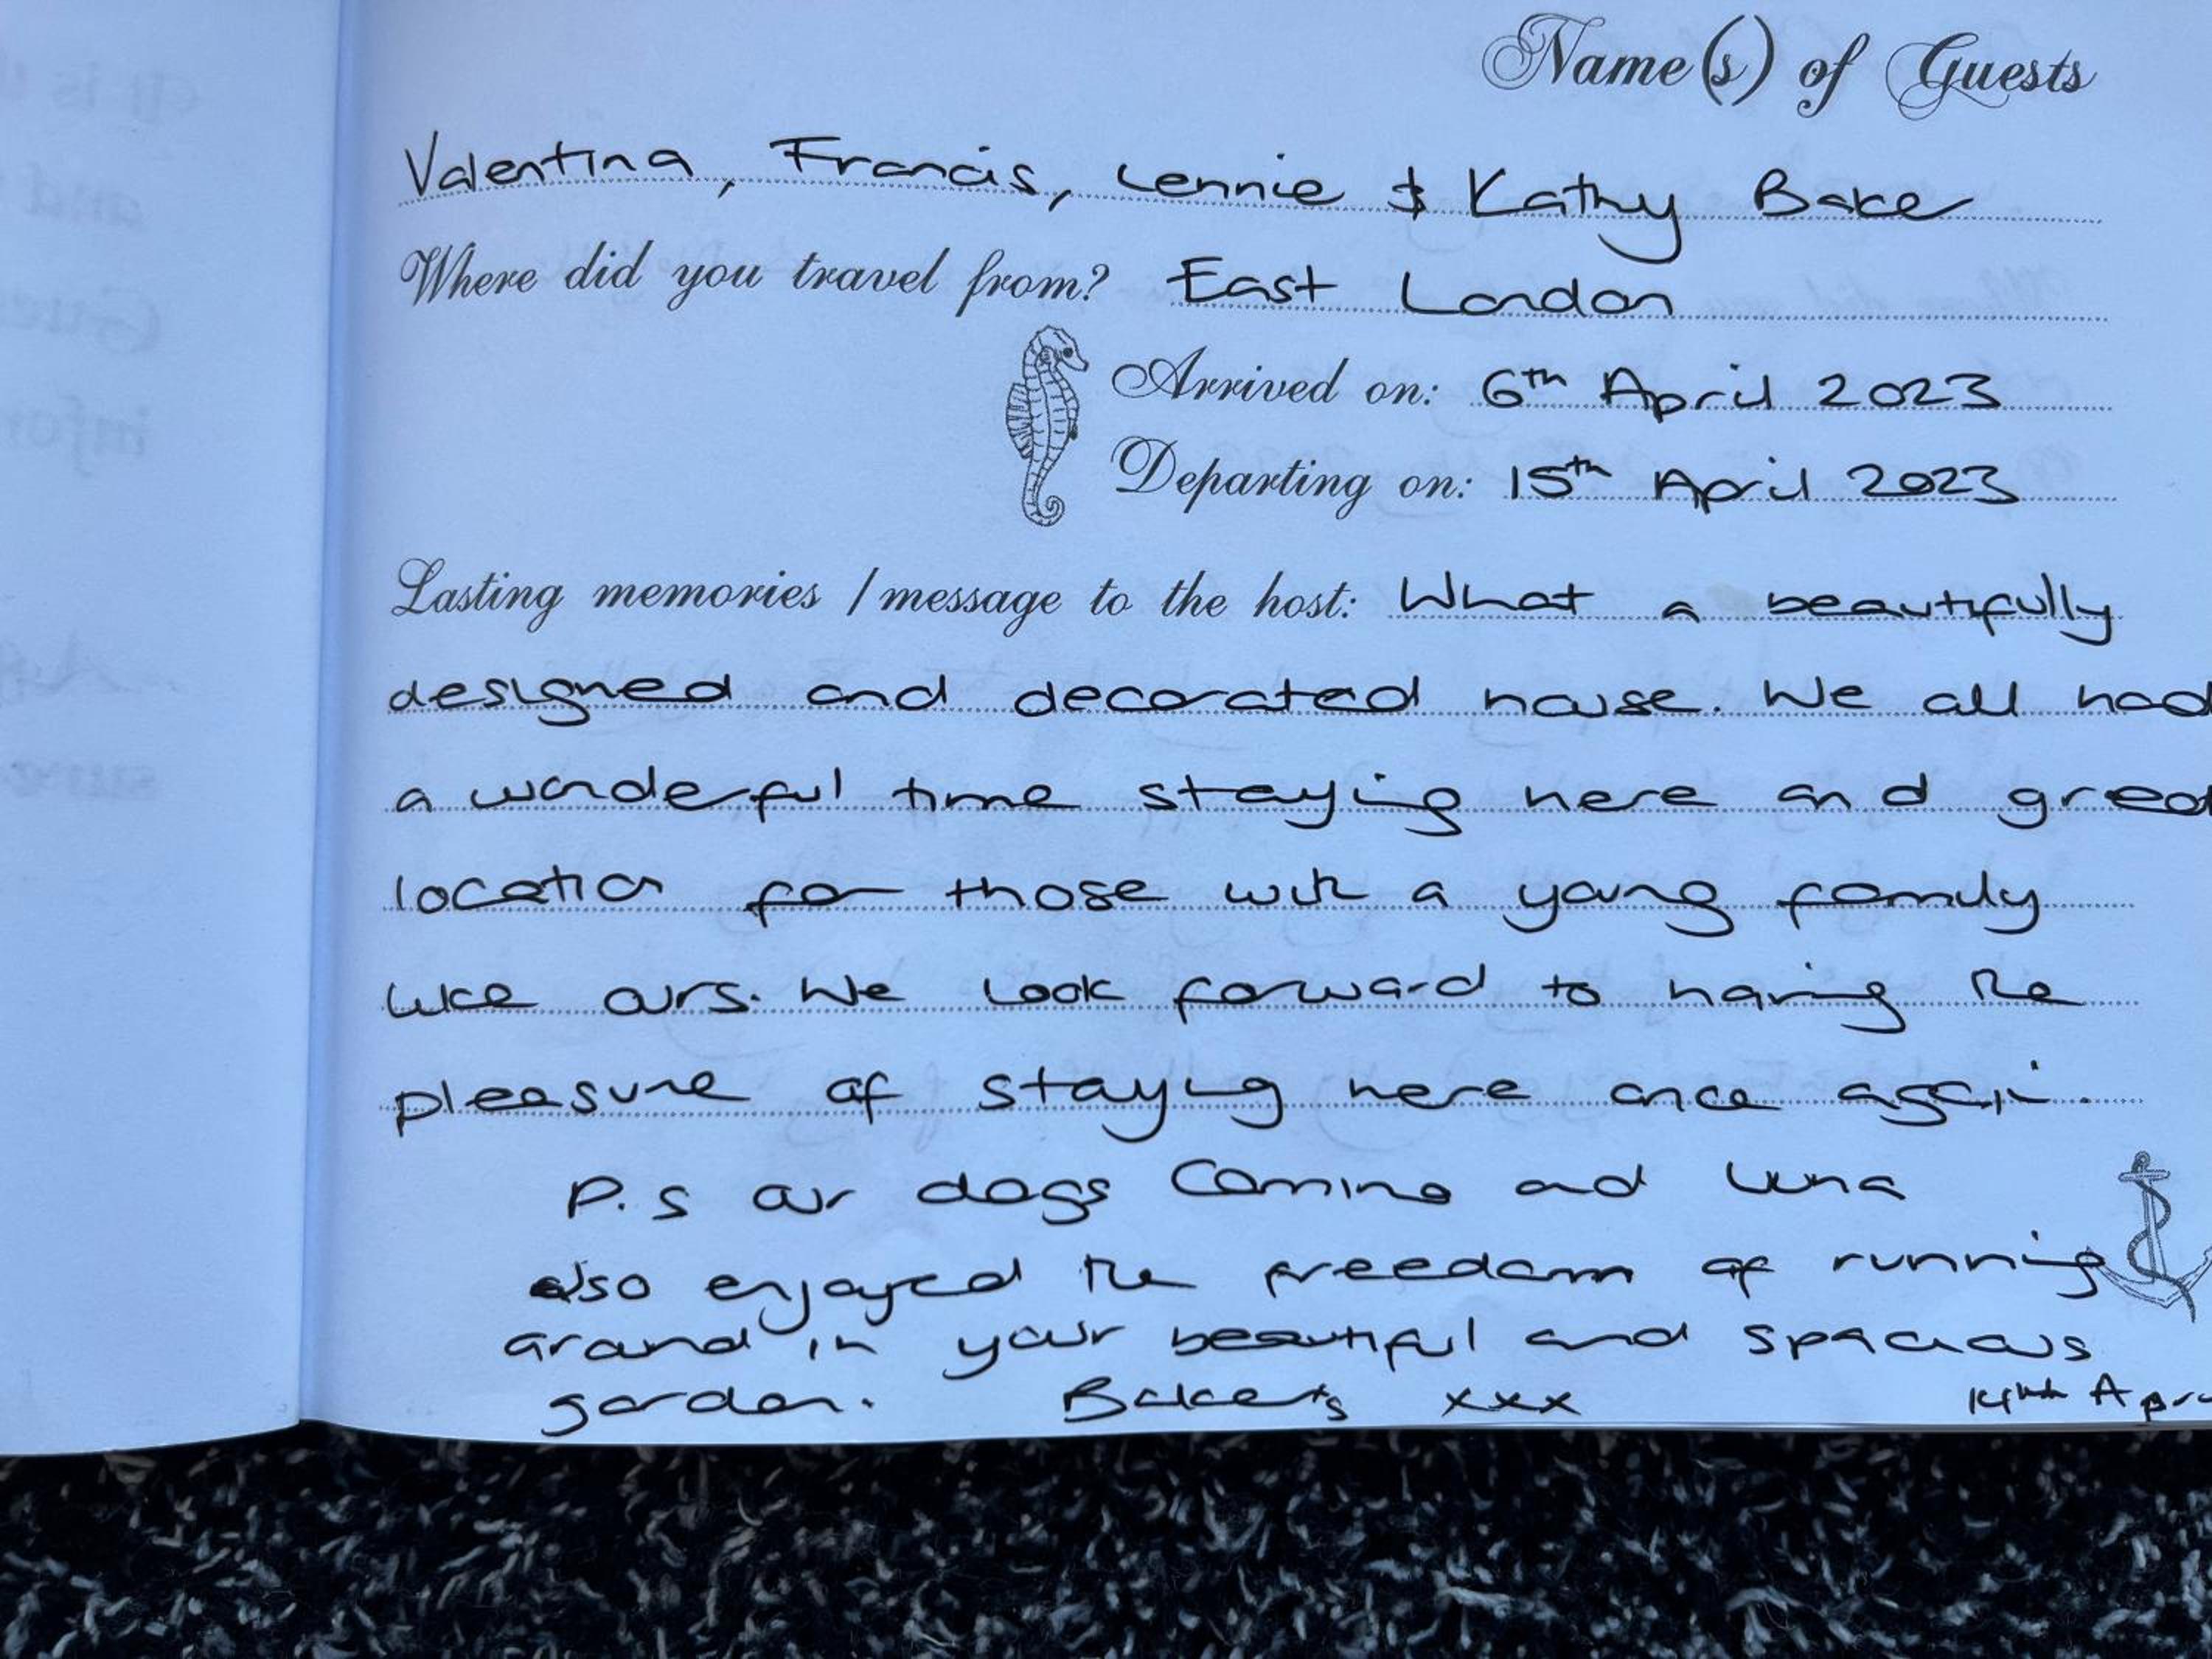 Name(s) of Guests
Valentina, Francis, Lennie & Kathy Baker
Where did you travel from? East London
Arrived on: 6th April 2023
Departing on: 15th April 2023
Lasting memories / message to the host: What a beautifully
designed and decorated house. We all had
a wonderful time staying here and great
location for those with a young family
like ours. We look forward to having the
pleasure of staying here once again.
P.S our dogs Camino and Luna
also enjoyed the freedom of running
around in your beautiful and spacious
garden. Bakers xxx 14th Apr